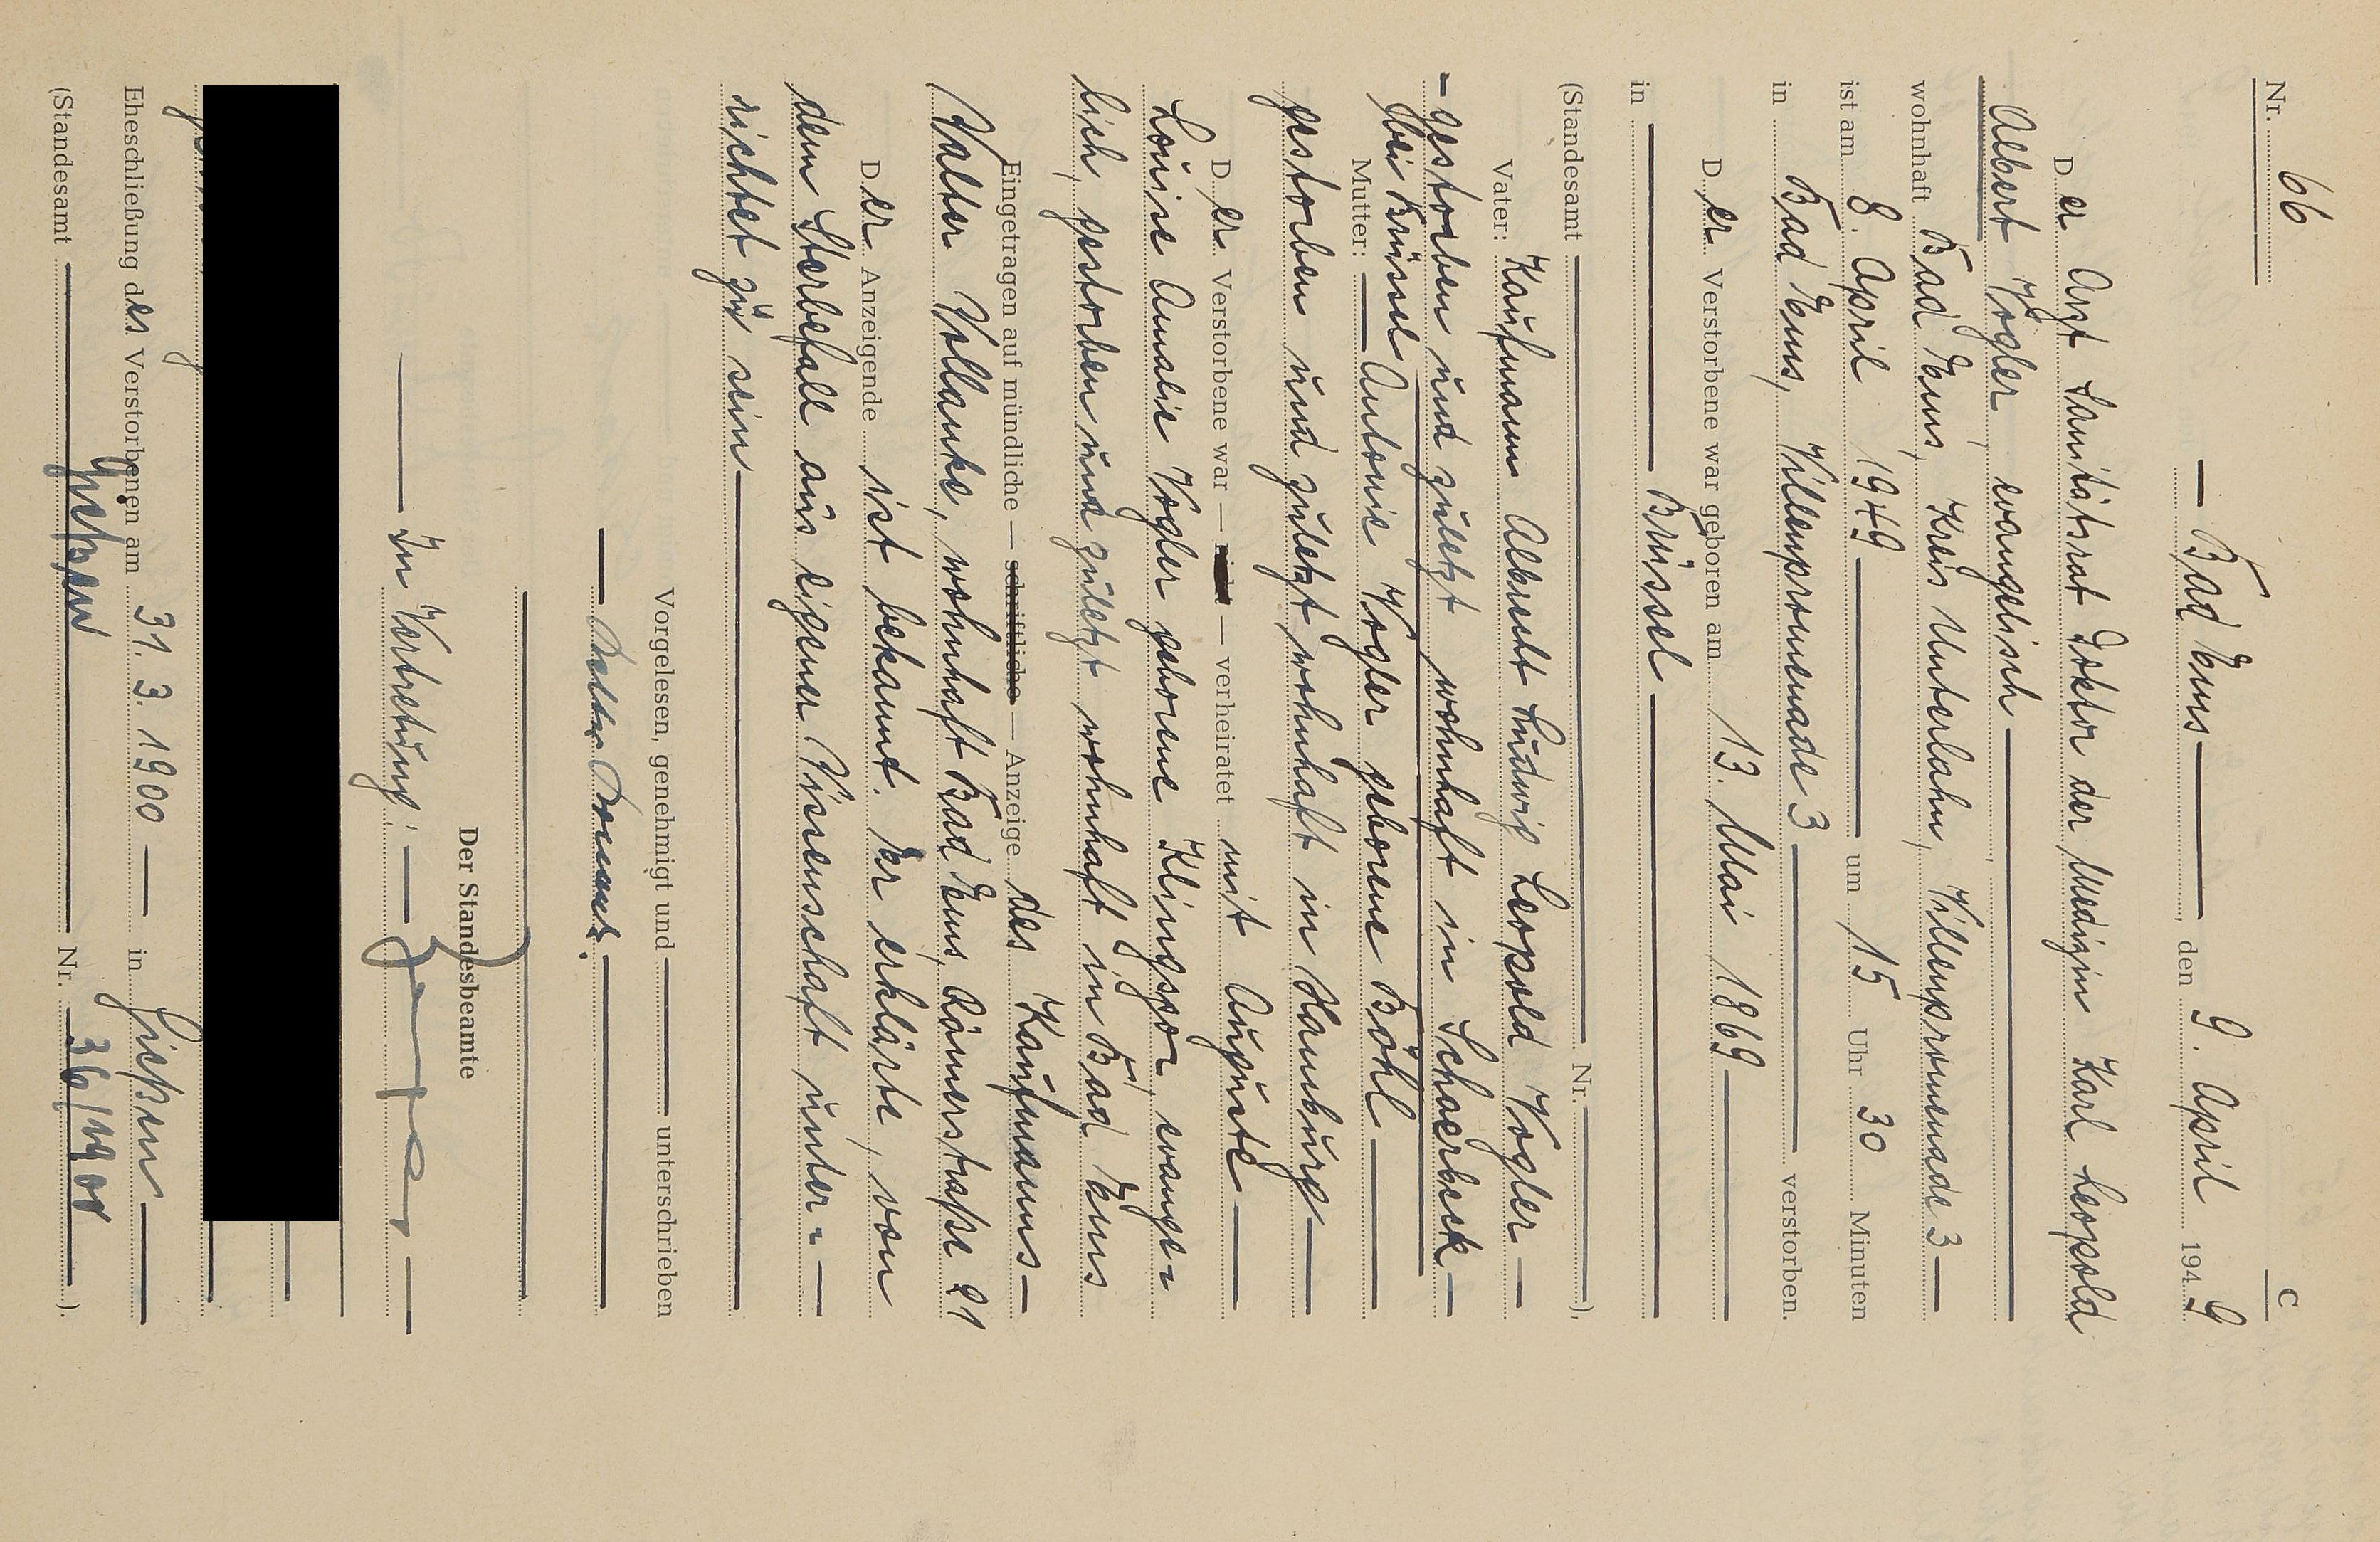 C
Nr. 66
— Bad Ems —, den 9. April 1949
Der Arzt Sanitätsrat Doktor der Medizin Karl Leopold
Albert Vogler, evangelisch —
wohnhaft Bad Ems, Kreis Unterlahn, Villenpromenade 3 —
ist am 8. April 1949 — um 15 Uhr 30 Minuten
in Bad Ems, Villenpromenade 3 — verstorben.
Der Verstorbene war geboren am 13. Mai 1869 —
in — Brüssel —
(Standesamt — Nr. —),
Vater: Kaufmann Albrecht Ludwig Leopold Vogler —
- gestorben und zuletzt wohnhaft in Schaerbeck —
bei Brüssel
Mutter: — Antonie Vogler geborene Böhl —
gestorben und zuletzt wohnhaft in Hamburg —
Der Verstorbene war — nicht — verheiratet mit Auguste —
Louise Amalie Vogler geborene Klingspor, evange-
lisch, gestorben und zuletzt wohnhaft in Bad Ems
Eingetragen auf mündliche — schriftliche — Anzeige des Kaufmanns —
Walter, wohnhaft Bad Ems, Römerstraße 21
Der Anzeigende ist bekannt. Er erklärte, von
dem Sterbefall aus eigener Wissenschaft unter-
richtet zu sein —
Vorgelesen, genehmigt und — unterschrieben
— Walter —
Der Standesbeamte
— In Vertretung: —
Eheschließung des Verstorbenen am 31. 3. 1900 — in Gießen —
(Standesamt — Gießen — Nr. 36/1900).